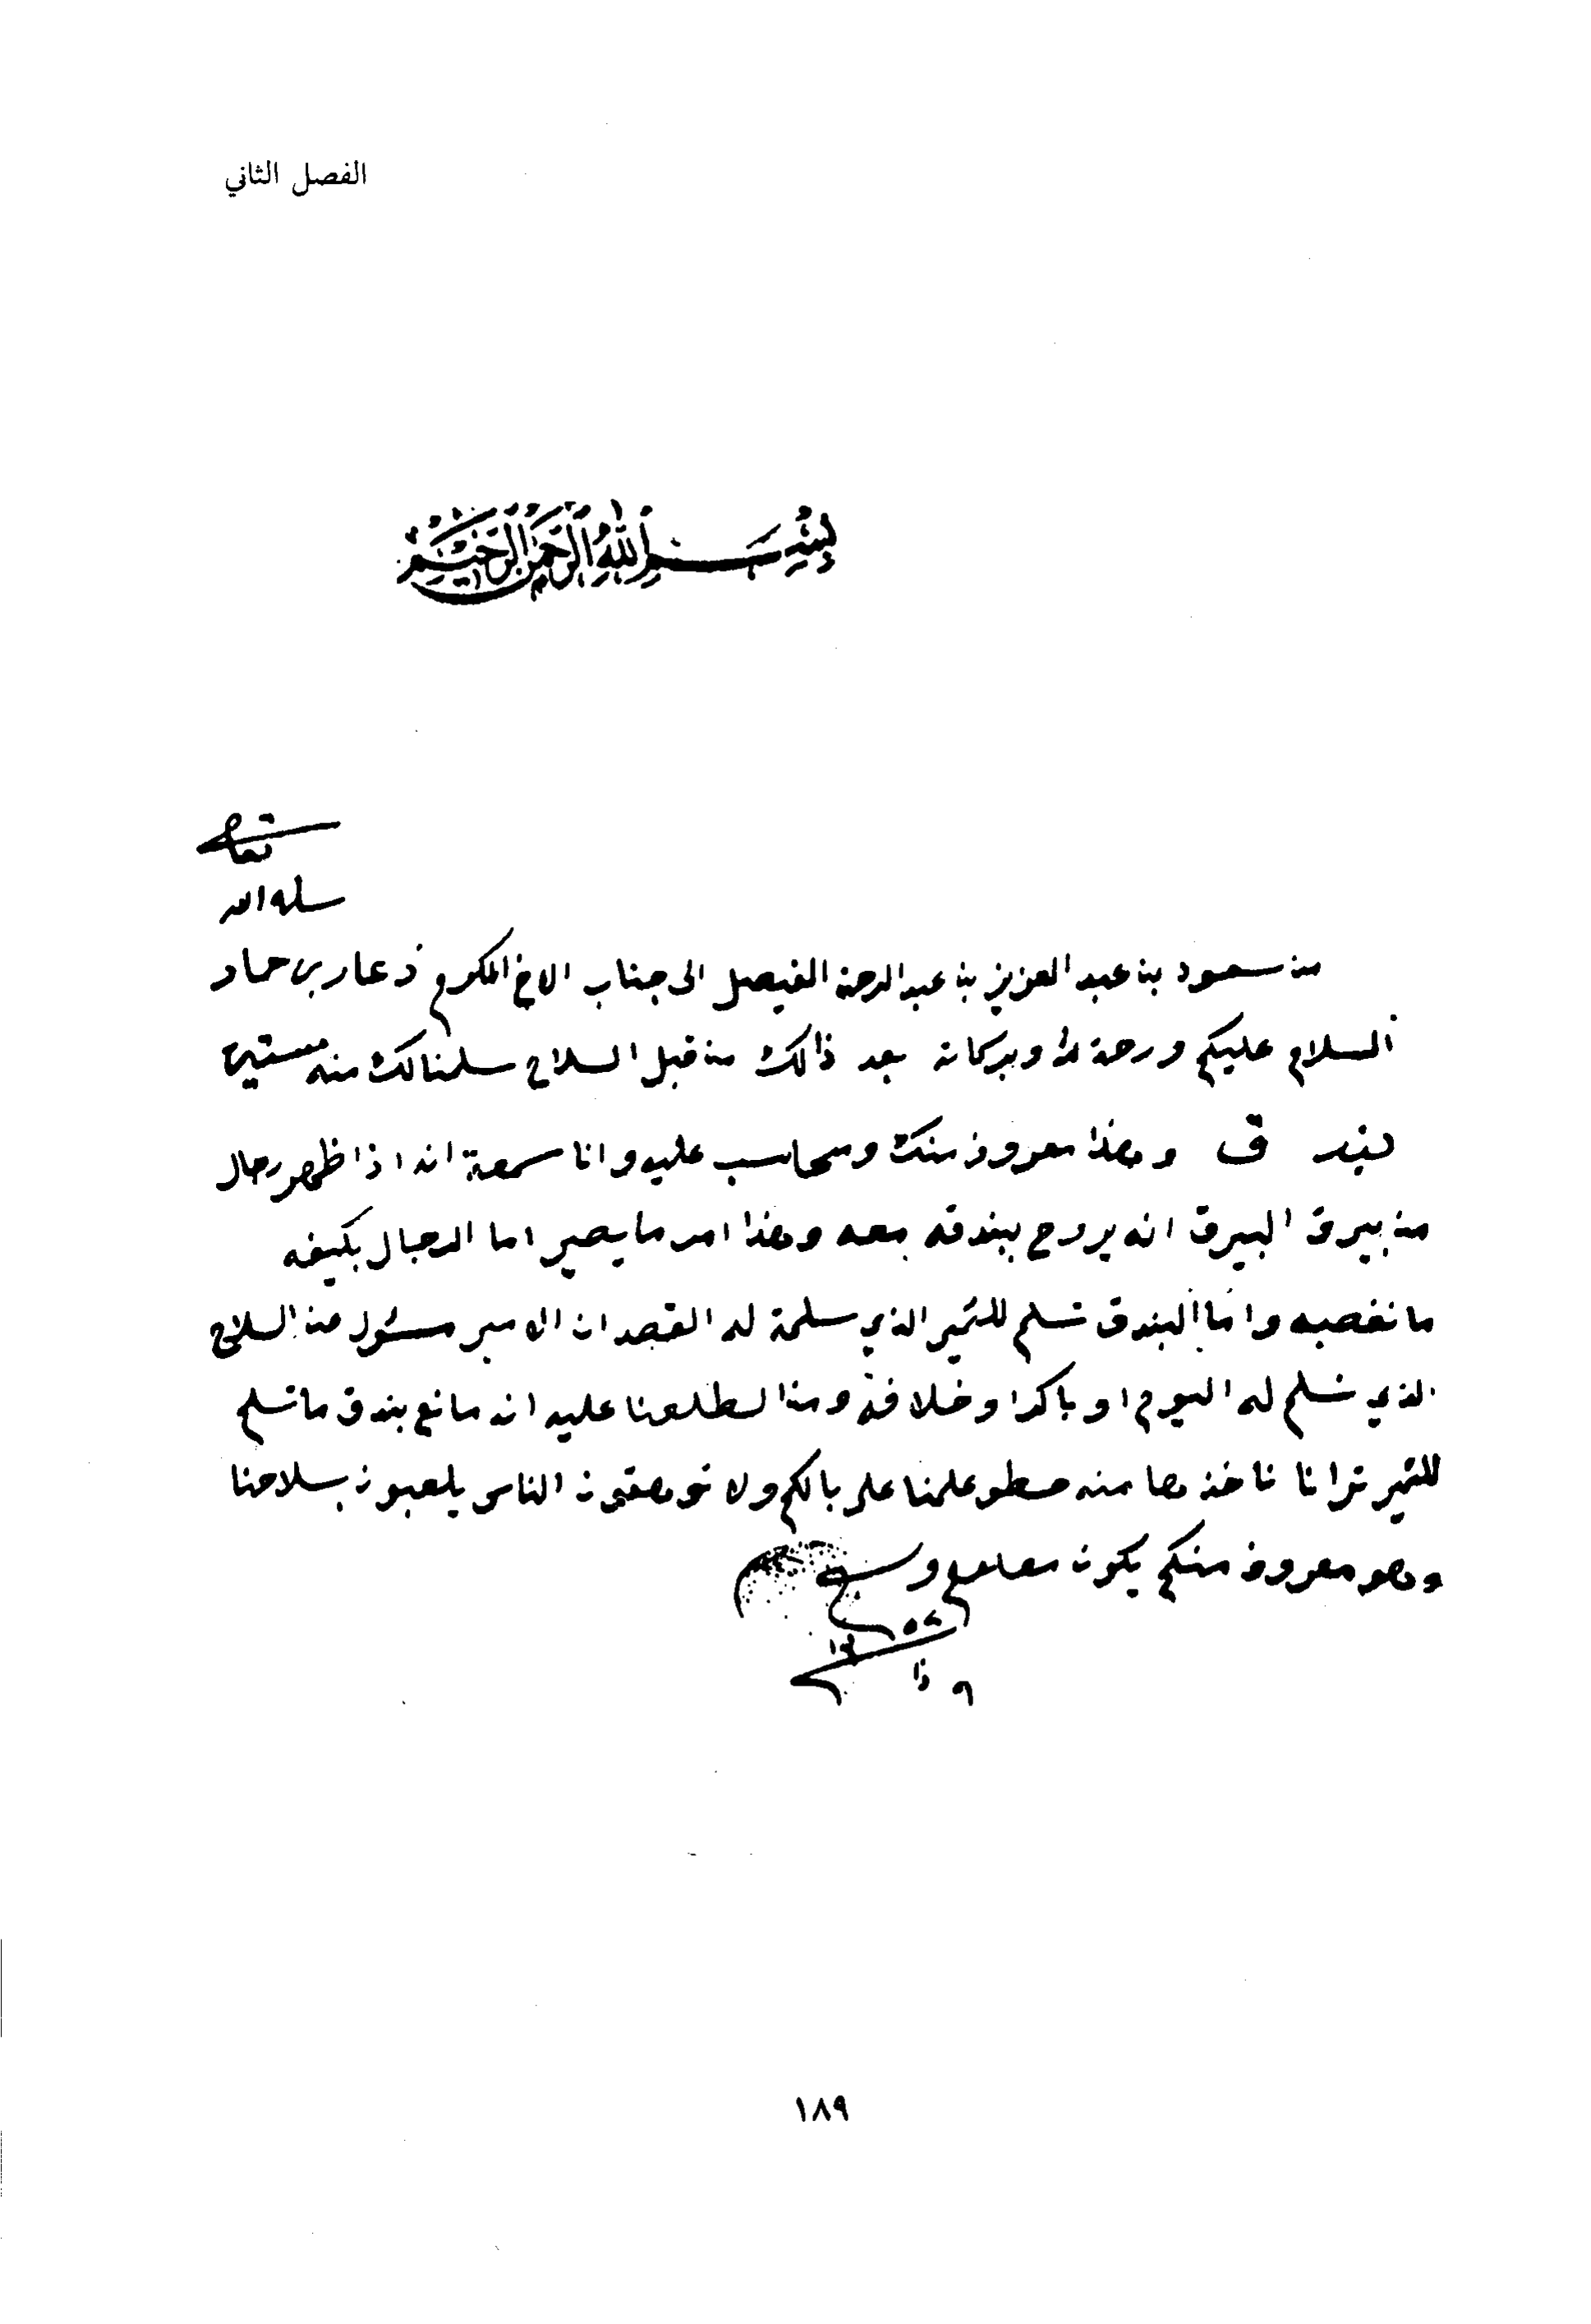 الفصل الثاني
بسم الله الرحمن الرحيم
تعالى
سلمه الله
من سعود بن عبد العزيز بن عبد الرحمن الفيصل الى جناب الاخ المكرم ذعار بن حماد
السلام عليكم ورحمة الله وبركاته بعد ذالك من قبل السلاح سلمنا لك منه ستين
بندق وهذا معروف منك ومحاسب عليه وانا سمعة انه اذا ظهر رجال
من بيرق البيرق انه يروح ببندقه معه وهذا امر ما يصير اما الرجال بكيفه
ما نغصبه واما البندق تسلم للامير الذي سلمة له القصد ان الامير مسئول عن السلاح
الذي نسلم له اليوم او باكر او خلافه ومن اطلعنا عليه انه مانع بندق ما تسلم
للامير ترانا ناخذها منه حطو علمنا على بالكم ولا الناس يلعبون بسلاحنا
وهو معروف منكم يكون معلوم و
١٨٩